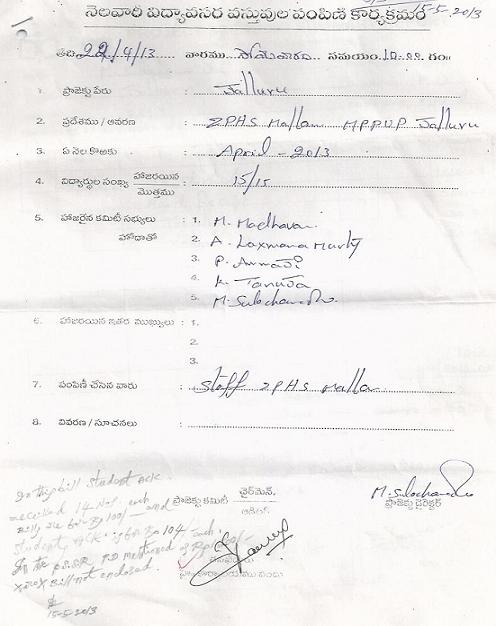 15-5-2013
నెలవారీ విద్యావసర వస్తువుల పంపిణి కార్యక్రమం
తేది 22/4/13 వారము సోమవారం సమయం 10-00 గం॥
1. ప్రాజెక్టు పేరు : Jalluru
2. ప్రదేశము / ఆవరణ : ZPHS Mallam MPPUP Jalluru
3. ఏ నెల కొఱకు : April - 2013
4. విద్యార్థుల సంఖ్య హాజరయిన / మొత్తము : 15/15
5. హాజరైన కమిటీ సభ్యులు : 1. M. Madhavi
హోదాతో 2. A. Laxmana Murty
3. P. Ammaji
4. K. Tanuja
5. M. Sulochana
6. హాజరయిన ఇతర ముఖ్యులు : 1.
2.
3.
7. పంపిణీ చేసిన వారు : Staff ZPHS Malla
8. వివరణ / సూచనలు :
In this bill student ack.
received 14 No/- each
only use for Rs 100/- and
student ACK is for Rs 104/- each.
In the P.D. mentioned of Rs
xerox Bill not enclosed.
15-5-2013
ప్రాజెక్టు కమిటీ చైర్‌మెన్.
M. Sulochana
ప్రాజెక్టు డైరెక్టర్